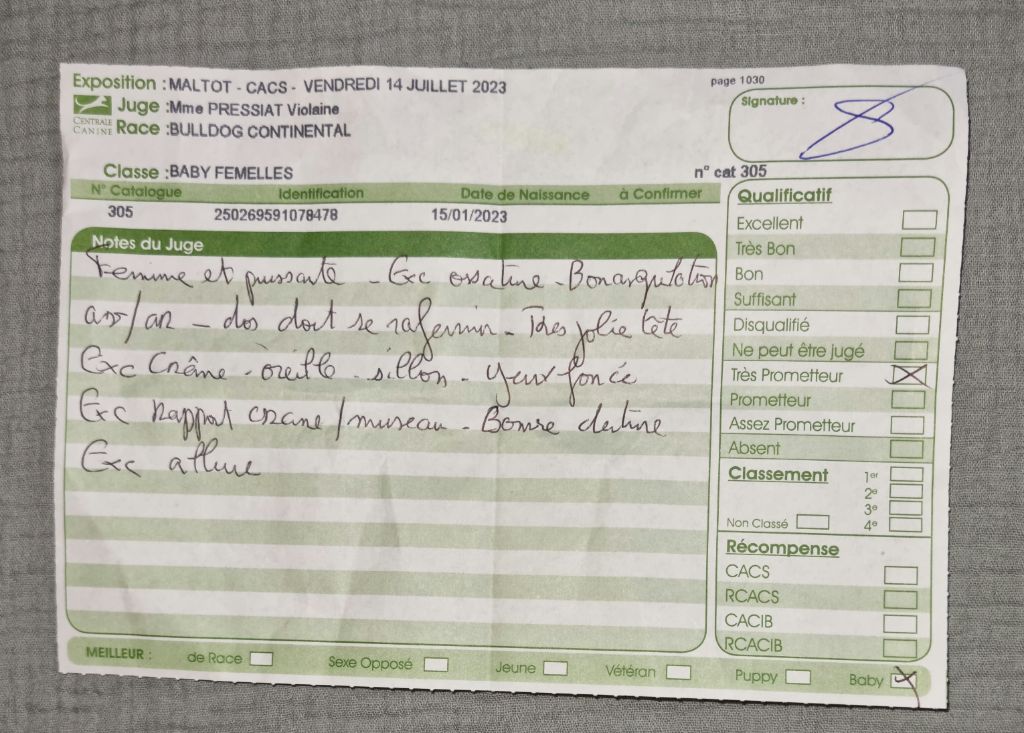 Exposition : MALTOT - CACS - VENDREDI 14 JUILLET 2023
page 1030
CENTRALE CANINE
Juge : Mme PRESSIAT Violaine
Race : BULLDOG CONTINENTAL
Signature :
Classe : BABY FEMELLES
n° cat 305
N° Catalogue Identification Date de Naissance à Confirmer
305 250269591078478 15/01/2023
Notes du Juge
Femme et puissante - Exc ossature - Bon angulation
av/ar - dos doit se rafermir - Très jolie tête
Exc Crâne - oreille - sillon - yeux foncée
Exc rapport crane/museau - Bonne denture
Exc allure
Qualificatif
Excellent
Très Bon
Bon
Suffisant
Disqualifié
Ne peut être jugé
Très Prometteur X
Prometteur
Assez Prometteur
Absent
Classement
1er
2e
3e
Non Classé 4e
Récompense
CACS
RCACS
CACIB
RCACIB
MEILLEUR : de Race Sexe Opposé Jeune Vétéran Puppy Baby X